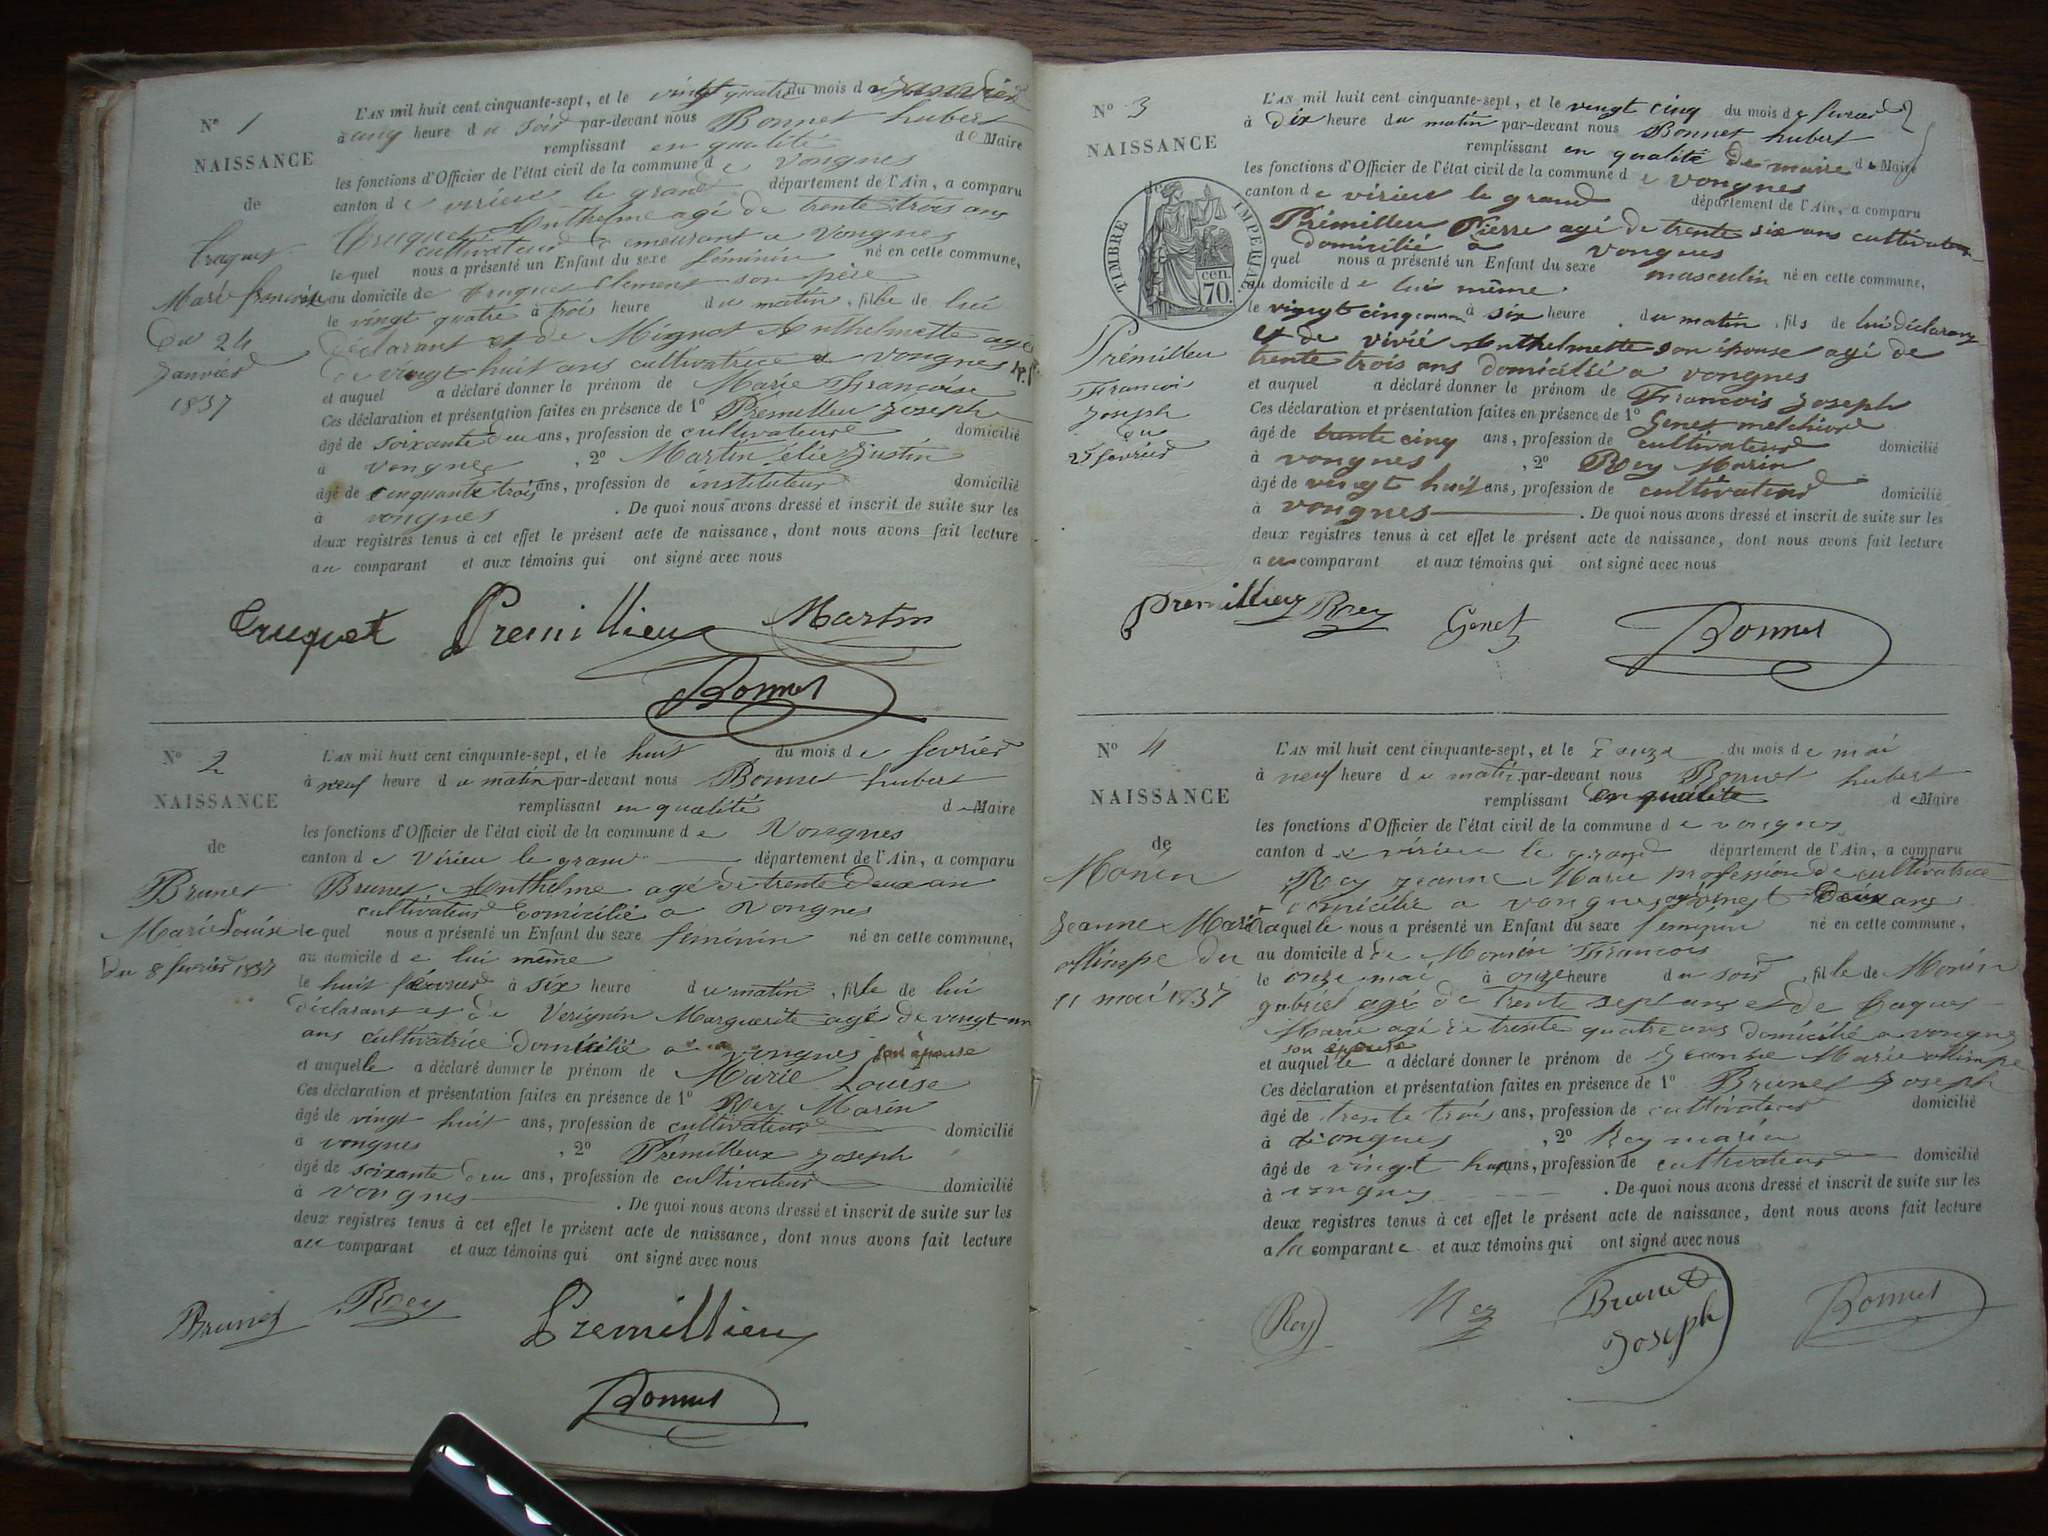 L'AN mil huit cent cinquante-sept, et le vingt quatre du mois de janvier
à cinq heure du soir par-devant nous Bonnet hubert
remplissant en qualité de Maire
les fonctions d'Officier de l'état civil de la commune de Vongnes
canton de virieu le grand département de l'Ain, a comparu
Truquet Anthelme agé de trente trois ans
cultivateur demeurant a Vongnes
le quel nous a présenté un Enfant du sexe féminin né en cette commune,
au domicile de Truquet Clement son père
le vingt quatre à trois heure du matin, fille de lui
déclarant et de Mignot Anthelmette agé
de vingt huit ans cultivatrice a vongnes
et auquel a déclaré donner le prénom de Marie Françoise
Ces déclaration et présentation faites en présence de 1º Prémilleu Joseph
âgé de soixante deu ans, profession de cultivateur domicilié
à vongnes, 2º Martin élie Justin
âgé de cinquante trois ans, profession de instituteur domicilié
à vongnes. De quoi nous avons dressé et inscrit de suite sur les
deux registres tenus à cet effet le présent acte de naissance, dont nous avons fait lecture
au comparant et aux témoins qui ont signé avec nous
Nº 1
NAISSANCE
de
Truquet
Marie françoise
du 24
Janvier
1857
Truquet Premillieu Martin
Bonnet
Nº 2
NAISSANCE
de
Brunet
Marie Louise
du 8 fevrier 1857
L'AN mil huit cent cinquante-sept, et le huit du mois de fevrier
à neuf heure du matin par-devant nous Bonnet hubert
remplissant en qualité de Maire
les fonctions d'Officier de l'état civil de la commune de Vongnes
canton de Virieu le grand département de l'Ain, a comparu
Brunet Anthelme agé de trente deux an
cultivateur domicilié a Vongnes
le quel nous a présenté un Enfant du sexe feminin né en cette commune,
au domicile de lui même
le huit fevrier à six heure du matin, fille de lui
déclarant et de Verignin Marguerite agé de vingt un
ans cultivatrice domicilié a vongnes son épouse
et auquelle a déclaré donner le prénom de Marie Louise
Ces déclaration et présentation faites en présence de 1º Rey Marin
âgé de vingt huit ans, profession de cultivateur domicilié
à vongnes, 2º Premilleux Joseph
âgé de soixante deu ans, profession de cultivateur domicilié
à vongnes. De quoi nous avons dressé et inscrit de suite sur les
deux registres tenus à cet effet le présent acte de naissance, dont nous avons fait lecture
au comparant et aux témoins qui ont signé avec nous
Brunet Rey Premillieu
Bonnet
Nº 3
NAISSANCE
de
TIMBRE IMPERIAL
70 cen.
Prémilleu
Francois
Joseph
du
25 fevrier
L'AN mil huit cent cinquante-sept, et le vingt cinq du mois de fevrier
à dix heure du matin par-devant nous Bonnet hubert
remplissant en qualité de maire de Maire
les fonctions d'Officier de l'état civil de la commune de vongnes
canton de virieu le grand département de l'Ain, a comparu
Prémilleu Pierre agé de trente six ans cultivateur
domicilié a vongnes
quel nous a présenté un Enfant du sexe masculin né en cette commune,
au domicile de lui même
le vingt cinq à six heure du matin, fils de lui déclarant
et de vivié Anthelmette son épouse agé de
trente trois ans domicilié a vongnes
et auquel a déclaré donner le prénom de Francois Joseph
Ces déclaration et présentation faites en présence de 1º Genet melchior
âgé de trente cinq ans, profession de cultivateur domicilié
à vongnes, 2º Rey Marin
âgé de vingt huit ans, profession de cultivateur domicilié
à vongnes. De quoi nous avons dressé et inscrit de suite sur les
deux registres tenus à cet effet le présent acte de naissance, dont nous avons fait lecture
au comparant et aux témoins qui ont signé avec nous
premillieu Rey Genet Bonnet
Nº 4
NAISSANCE
de
Monin
Jeanne Marie
ollimpe du
11 mai 1857
L'AN mil huit cent cinquante-sept, et le douze du mois de mai
à neuf heure du matin par-devant nous Bonnet hubert
remplissant en qualité de Maire
les fonctions d'Officier de l'état civil de la commune de vongnes
canton de virieu le grand département de l'Ain, a comparu
Rey Jeanne Marie profession de cultivatrice
domicilié a vongnes deux ans
laquelle nous a présenté un Enfant du sexe feminin né en cette commune,
au domicile de Monin Francois
le onze mai à onze heure du soir, fille de Monin
gabriel agé de trente sept ans et de Taques
Marie agé de trente quatre ans domicilié a vongnes
son épouse
et auquelle a déclaré donner le prénom de Jeanne Marie ollimpe
Ces déclaration et présentation faites en présence de 1º Brunet Joseph
âgé de trente trois ans, profession de cultivateur domicilié
à vongnes, 2º Rey marin
âgé de vingt huit ans, profession de cultivateur domicilié
à vongnes. De quoi nous avons dressé et inscrit de suite sur les
deux registres tenus à cet effet le présent acte de naissance, dont nous avons fait lecture
a la comparante et aux témoins qui ont signé avec nous
Rey Rey Brunet Joseph Bonnet